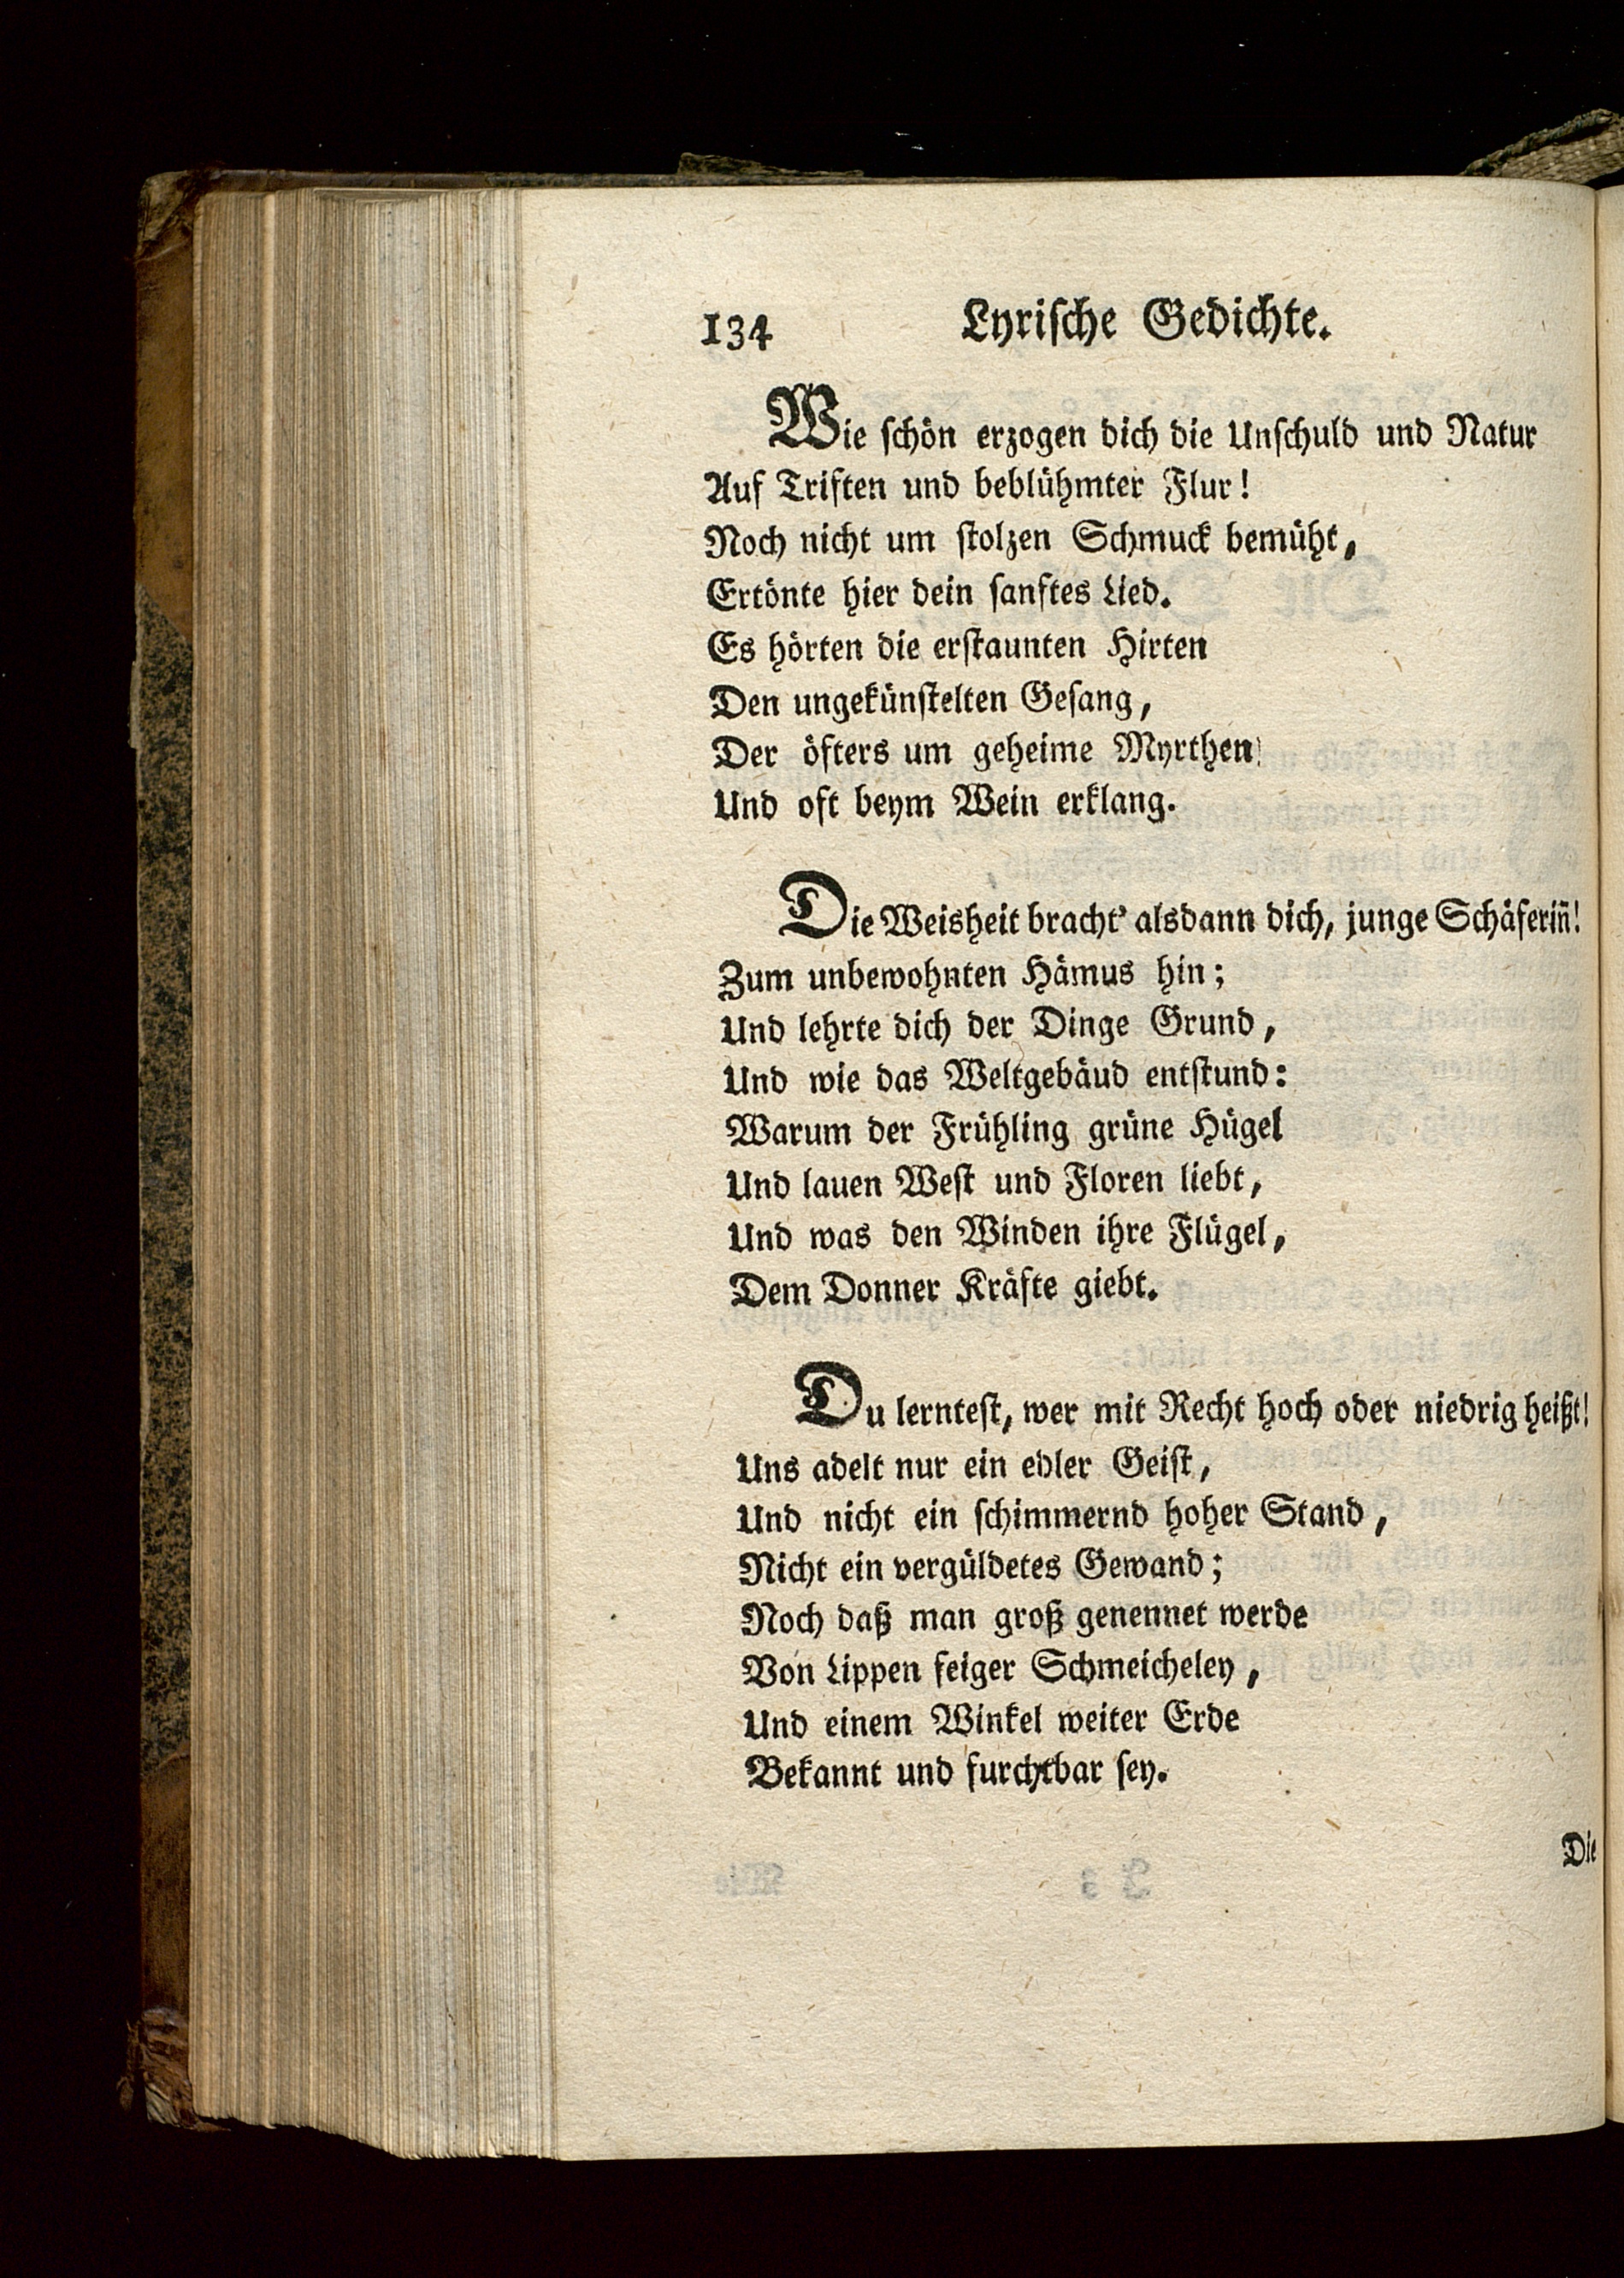 134 Lyriſche Gedichte.
Wie ſchön erzogen dich die Unſchuld und Natur
Auf Triften und beblühmter Flur!
Noch nicht um ſtolzen Schmuck bemüht,
Ertönte hier dein ſanftes Lied.
Es hörten die erſtaunten Hirten
Den ungekünſtelten Geſang,
Der öfters um geheime Myrthen
Und oft beym Wein erklang.
Die Weisheit bracht’ alsdann dich, junge Schäferin̄!
Zum unbewohnten Hämus hin;
Und lehrte dich der Dinge Grund,
Und wie das Weltgebäud entſtund:
Warum der Frühling grüne Hügel
Und lauen Weſt und Floren liebt,
Und was den Winden ihre Flügel,
Dem Donner Kräfte giebt.
Du lernteſt, wer mit Recht hoch oder niedrig heißt!
Uns adelt nur ein edler Geiſt,
Und nicht ein ſchimmernd hoher Stand,
Nicht ein vergüldetes Gewand;
Noch daß man groß genennet werde
Von Lippen feiger Schmeicheley,
Und einem Winkel weiter Erde
Bekannt und furchtbar ſey.
Die